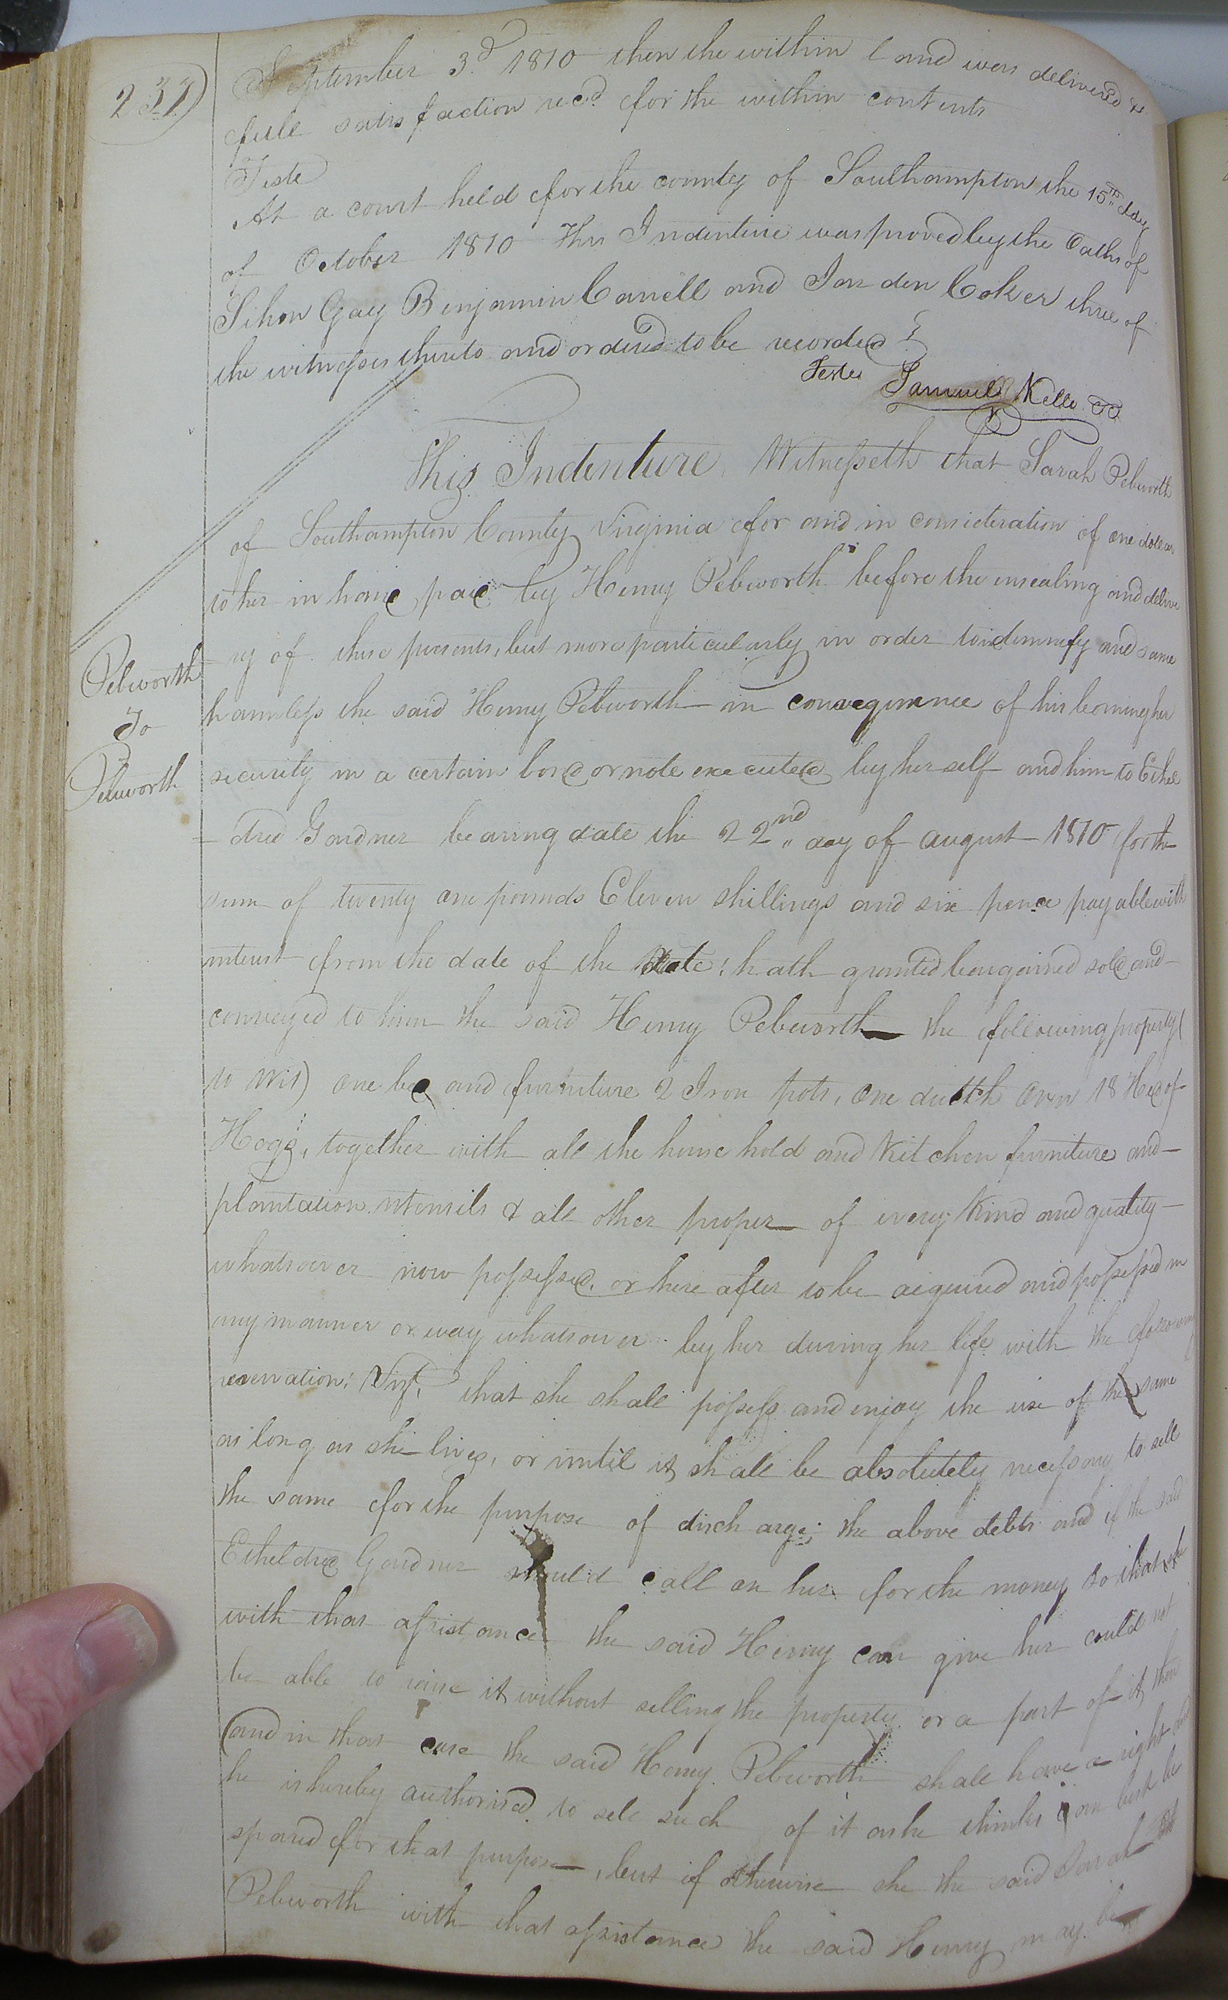 237
September 3d 1810 then the within land was delivered &
full satisfaction recd for the within contents
Teste
At a court held for the county of Southampton the 15th day
of October 1810 This Indenture was proved by the Oaths of
Sihon Gay Benjamin Carrell and Jordan Coker three of
the witnesses thereto and ordered to be recorded
Teste Samuel Kello CC
This Indenture Witnesseth that Sarah Pebworth
of Southampton County Virginia for and in consideration of one dollar
to her in hand paid by Henry Pebworth before the ensealing and delive
ry of these presents, but more particularly in order to indemnify and same
harmless the said Henry Pebworth in consequence of his becoming her
Pebworth
To
Pebworth
security in a certain bond or note executed by herself and him to Ethel
-dred Gardner bearing date the 22nd day of august 1810 for the
sum of twenty one pounds Eleven shillings and six pence payable with
interest from the date of the Note: hath granted bargained sold and
conveyed to him the said Henry Pebworth the following property (
to wit) one bed and furniture 2 Iron pots, one dutch oven 18 Head of
Hogs, together with all the house hold and Kitchen furniture and
plantation utensils & all other proper of every Kind and quality
whatsoever now possessed or here after to be acquired and possessed in
any manner or way whatsoever by her during her life with the following
reservation: First, that she shall possess and enjoy the use of the same
as long as she lives, or until it shall be absolutely necessary to sell
the same for the purpose of discharge; the above debts and if the said
Etheldred Gardner should call on her for the money so that she
with that assistance the said Henry can give her could not
be able to raise it without selling the property or a part of it then
(and in that case the said Henry Pebworth shall have a right and
he is hereby authorised to sell such of it as he thinks can best be
spared for that purpose, but if otherwise she the said Sarah
Pebworth with that assistance the said Henry may be